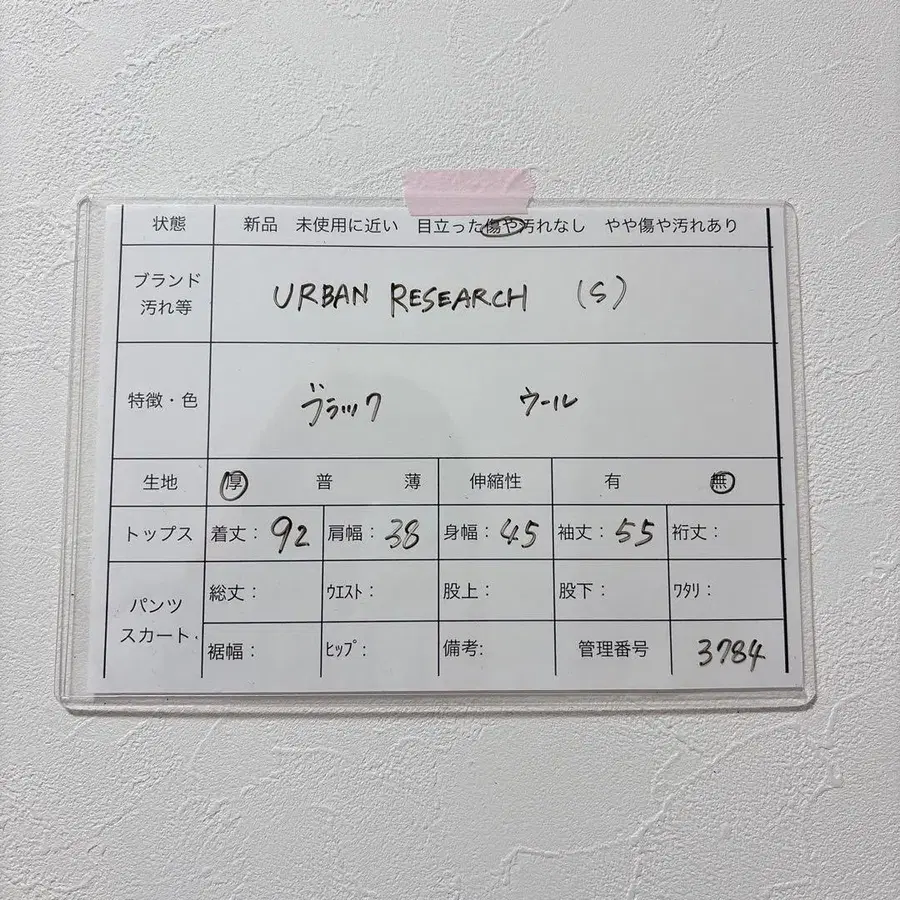 状態 新品 未使用に近い 目立った傷や汚れなし やや傷や汚れあり
ブランド
汚れ等
URBAN RESEARCH (S)
特徴・色 ブラック ウール
生地 厚 普 薄 伸縮性 有 無
トップス 着丈：92 肩幅：38 身幅：45 袖丈：55 裄丈：
パンツ
スカート
総丈： ｳｴｽﾄ： 股上： 股下： ﾜﾀﾘ：
裾幅： ﾋｯﾌﾟ： 備考: 管理番号 3784